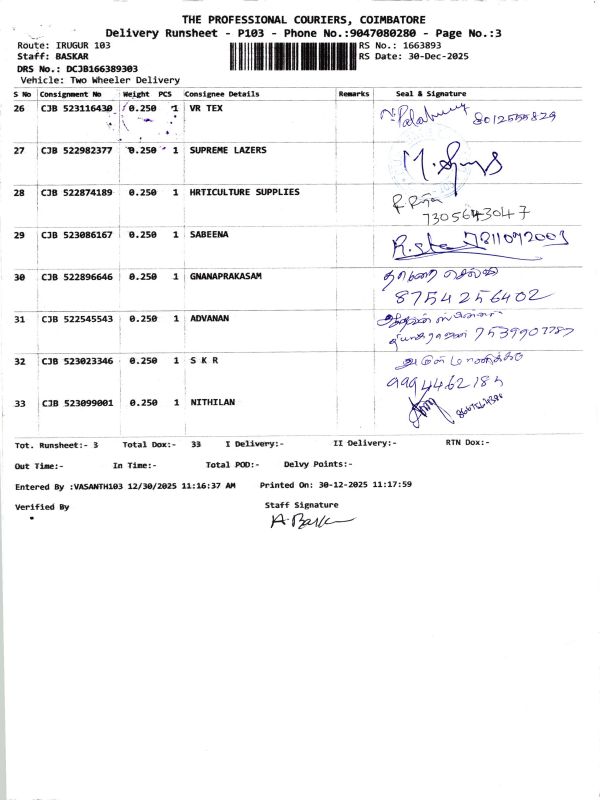 THE PROFESSIONAL COURIERS, COIMBATORE
Delivery Runsheet - P103 - Phone No.:9047080280 - Page No.:3
Route: IRUGUR 103 RS No.: 1663893
Staff: BASKAR RS Date: 30-Dec-2025
DRS No.: DCJB166389303
Vehicle: Two Wheeler Delivery
S No Consignment No Weight PCS Consignee Details Remarks Seal & Signature
26 CJB 523116430 0.250 1 VR TEX 8012555829
27 CJB 522982377 0.250 1 SUPREME LAZERS
28 CJB 522874189 0.250 1 HRTICULTURE SUPPLIES
7305643047
29 CJB 523086167 0.250 1 SABEENA 7811092003
30 CJB 522896646 0.250 1 GNANAPRAKASAM
8754256402
31 CJB 522545543 0.250 1 ADVANAN
7539907787
32 CJB 523023346 0.250 1 S K R
9994462184
33 CJB 523099001 0.250 1 NITHILAN
Tot. Runsheet:- 3 Total Dox:- 33 I Delivery:- II Delivery:- RTN Dox:-
Out Time:- In Time:- Total POD:- Delvy Points:-
Entered By :VASANTH103 12/30/2025 11:16:37 AM Printed On: 30-12-2025 11:17:59
Verified By Staff Signature